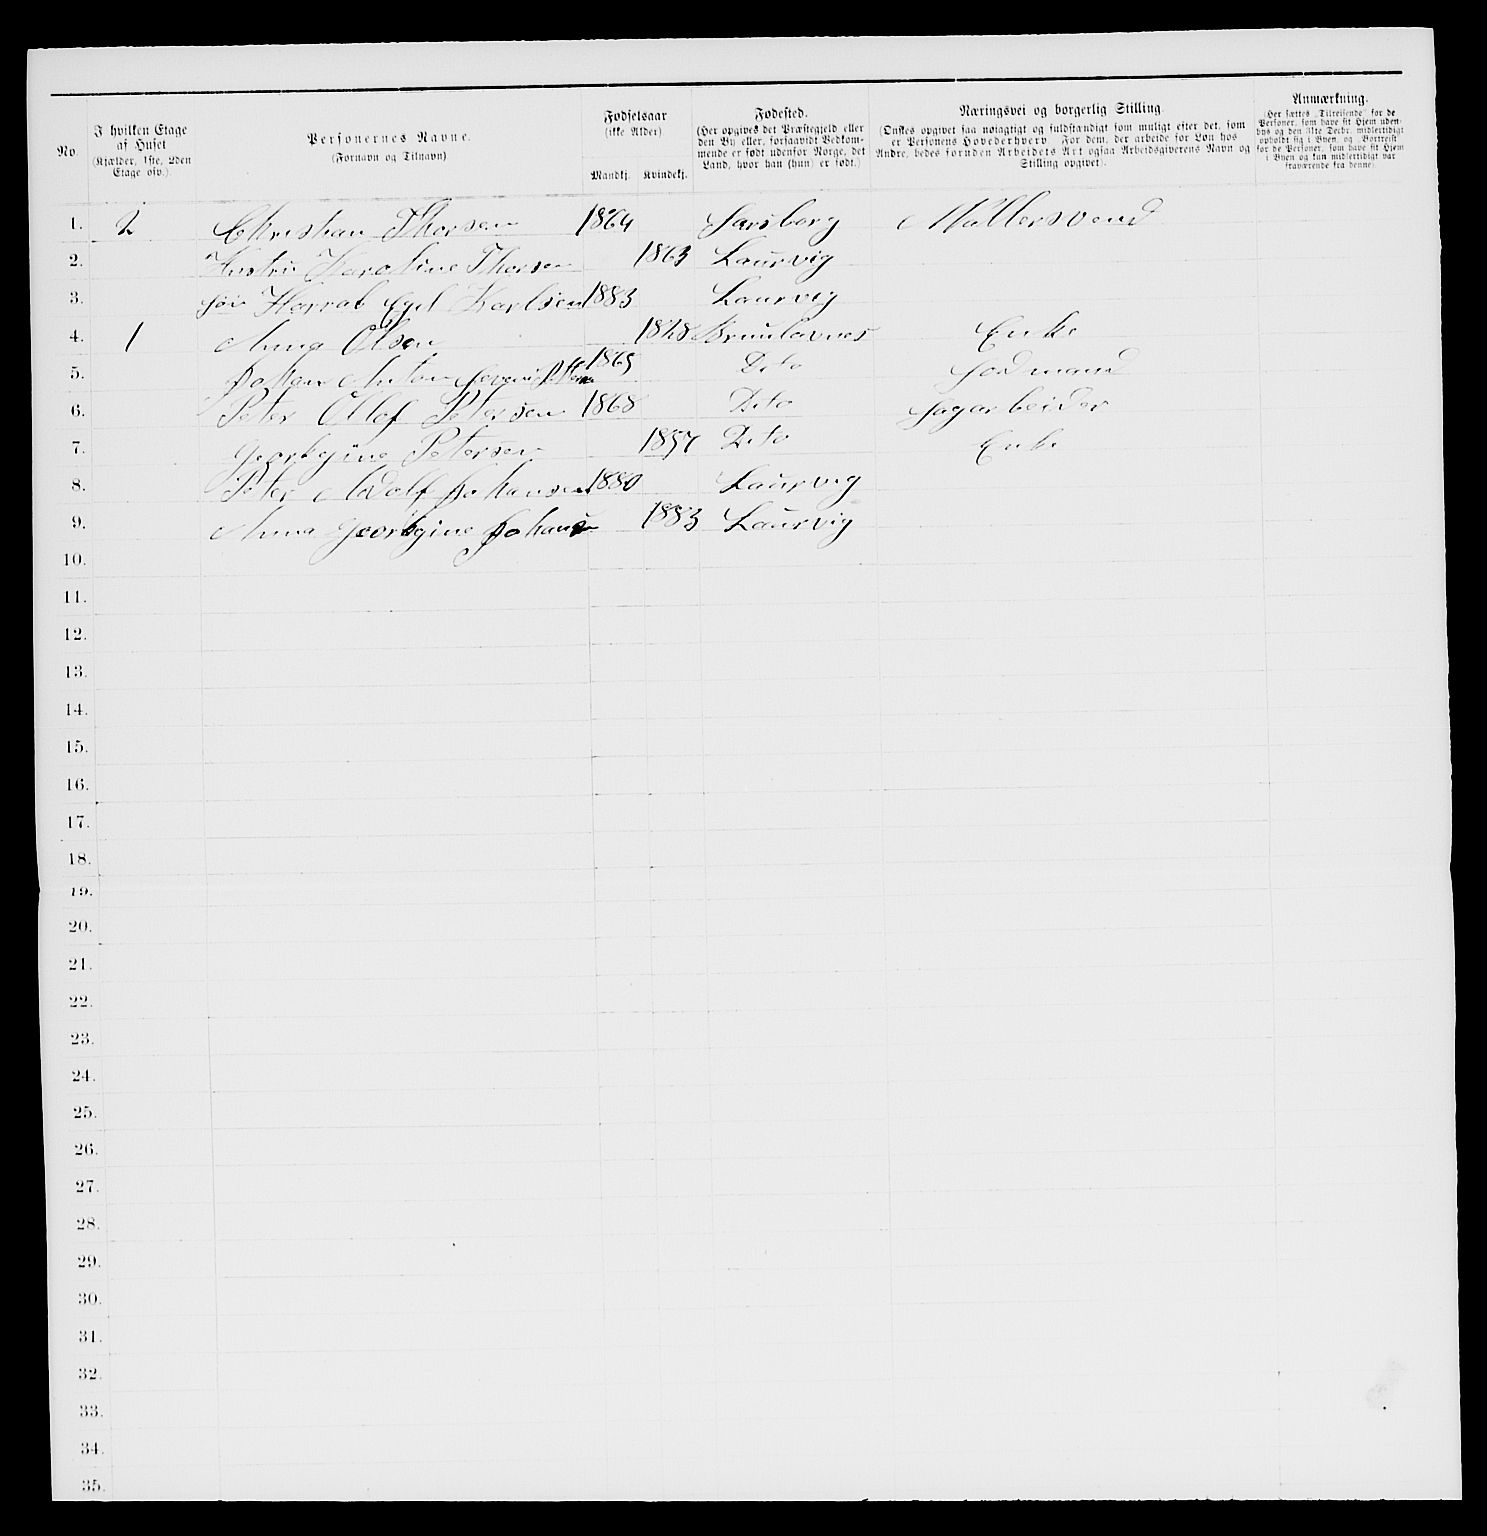 No.
I hvilken Etage
af Huset
(Kjælder, 1ste, 2den
Etage osv.).
Personernes Navne.
(Fornavn og Tilnavn)
Fødselsaar
(ikke Alder)
Mandkj. Kvindekj.
Fødested.
(Her opgives det Præstegjeld eller
den By eller, forsaavidt Vedkom-
mende er født udenfor Norge, det
Land, hvor han (hun) er født.)
Næringsvei og borgerlig Stilling.
(Ønskes opgivet saa nøiagtigt og fuldstændigt som muligt efter det, som
er Personens Hovederhverv. For dem, der arbeide for Løn hos
Andre, bedes foruden Arbeidets Art ogsaa Arbeidsgiverens Navn og
Stilling opgivet).
Anmærkning.
(Her sættes „Tilreisende“ for de
Personer, som have sit Hjem uden-
bys og den 31te Decbr. midlertidigt
opholdt sig i Byen, og „Bortreist“
for de Personer, som have sit Hjem
i Byen og kun midlertidigt var
fraværende fra denne).
1. 2 Christian Thorsen 1864 Sarsborg Møllersvend
2. Hustru Karoline Thorsen 1863 Laurvig
3. Harrab Egil Karlsen 1883 Laurvig
4. 1 Anna Olsen 1828 Brunlavnes Enke
5. Johan Anton 1865 Dito
6. Peter Ollof Petersen 1868 Dito Sagarbeider
7. Georgine Petersen 1857 Dito Enke
8. Peter Adolf Johansen 1880 Laurvig
9. Anna Georgine 1883 Laurvig
10.
11.
12.
13.
14.
15.
16.
17.
18.
19.
20.
21.
22.
23.
24.
25.
26.
27.
28.
29.
30.
31.
32.
33.
34.
35.